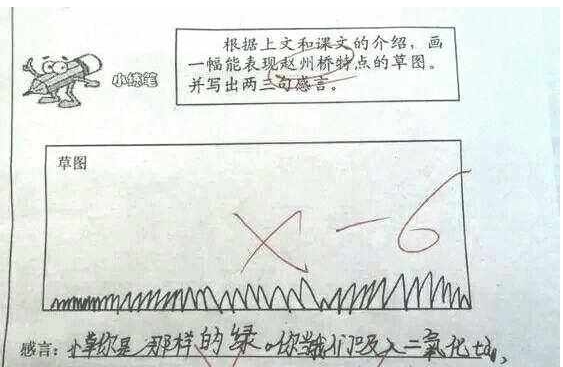 根据上文和课文的介绍，画
一幅能表现赵州桥特点的草图。
并写出两三句感言。
小练笔
草图
× -6
感言：小草你是那样的绿。你帮我们吸入二氧化tan，